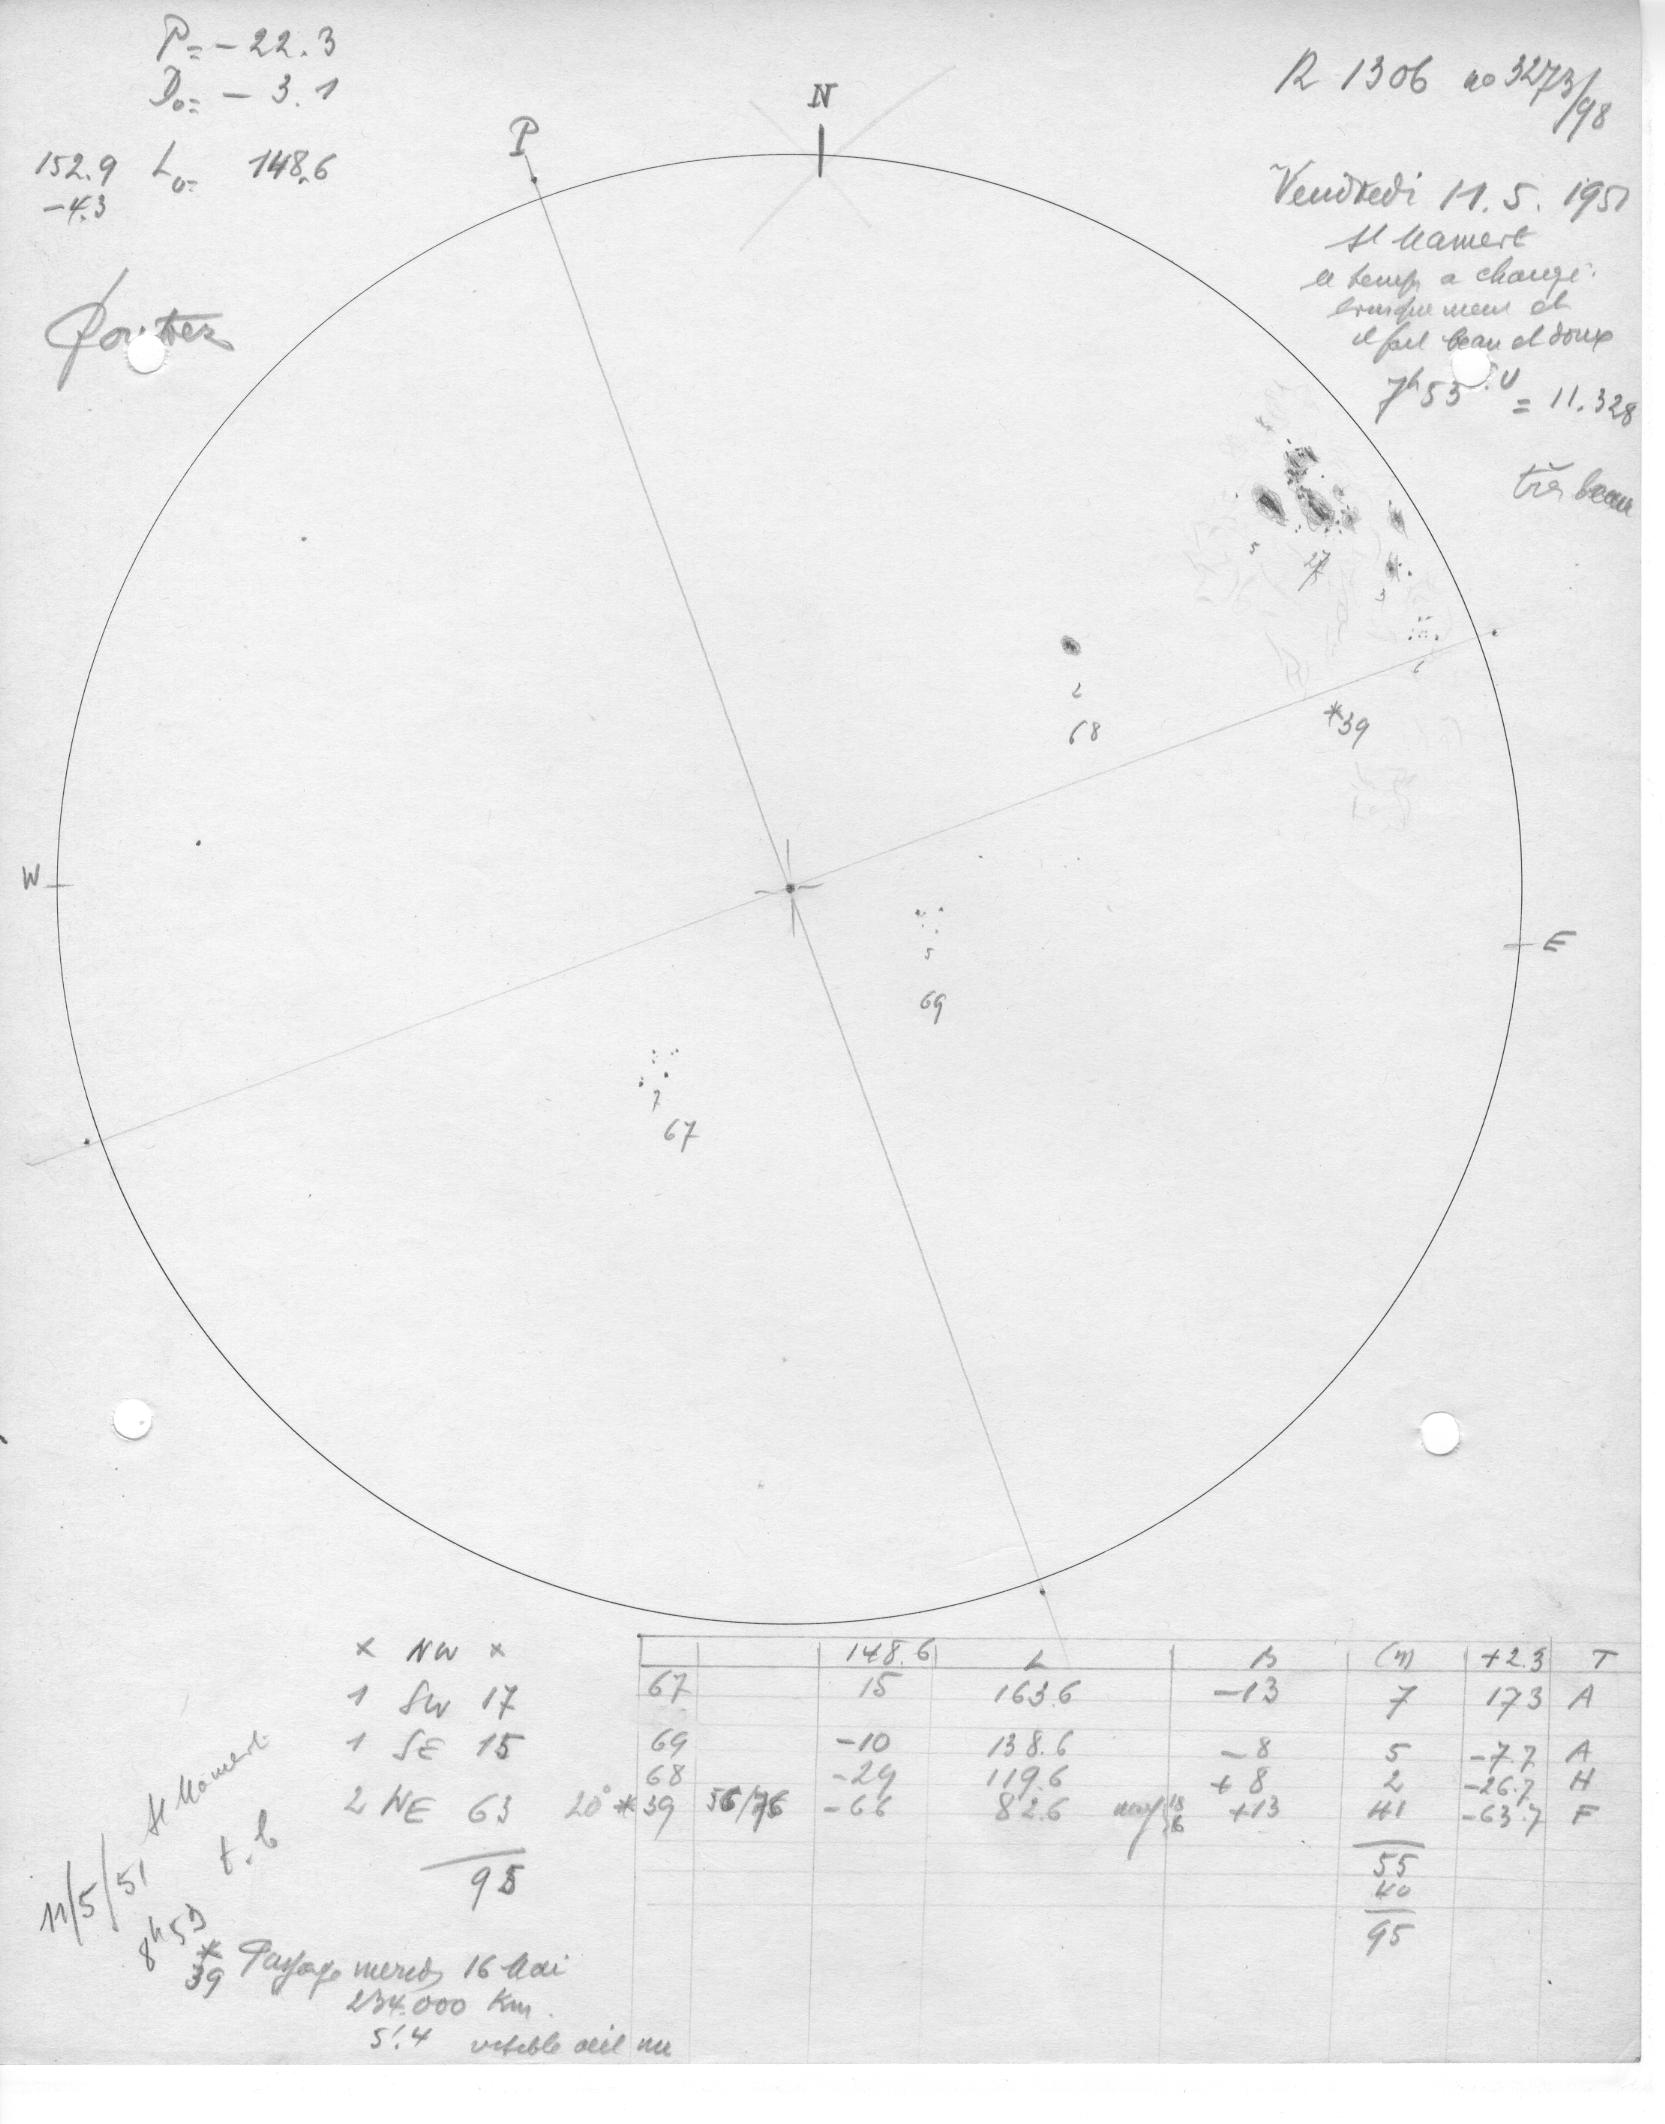 P = -22.3
D₀ = - 3.1
152.9 L₀ = 148.6
-4.3
R 1306 no 3273/98
Vendredi 11. 5. 1951
St Mamert
le temps a changé
brusquement et
il fait beau et doux
7h 53 T.U = 11.328
très beau
P
N
5
27
3
6
*39
2
68
W
E
5
69
7
67
x NW x
1 SW 17
1 SE 15
2 NE 63
95
148.6 L B (n) +2.3 T
67 15 163.6 -13 7 17.3 A
69 -10 138.6 -8 5 -7.7 A
68 -29 119.6 +8 2 -26.7 H
20° *39 56/76 -66 82.6 +13 41 -63.7 F
55
40
95
11/5/51 St Mamert
8h 53 t.b
* 39 Passage mercredi 16 Mai
234.000 Km.
5!.4 visible œil nu